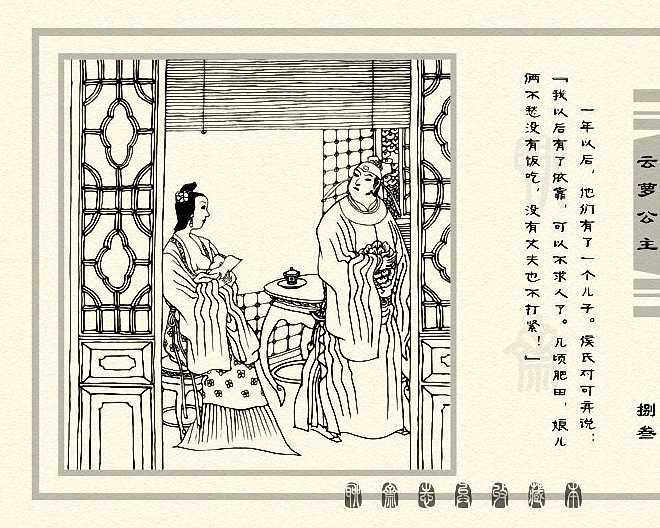 云萝公主
一年以后，他们有了一个儿子。侯氏对可弃说：
“我以后有了依靠，可以不求人了。几顷肥田，娘儿
俩不愁没有饭吃，没有丈夫也不打紧！”
捌叁
聊斋志异收藏本